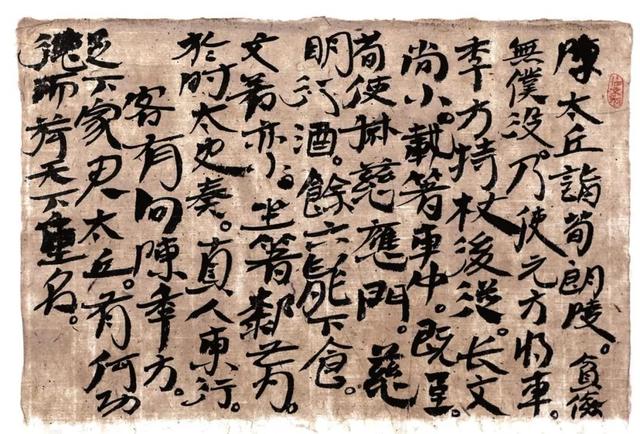 陳太丘詣荀朗陵。貧儉
無僕役。乃使元方将車。
季方持杖後從。长文
尚小。載箸車中。既至。
荀使叔慈應門。慈
明行酒。餘六龍下食。
文若亦小。坐箸膝前。
於时太史奏。真人東行。
客有问陳季方。
足下家君太丘。有何功
德而荷天下重名。